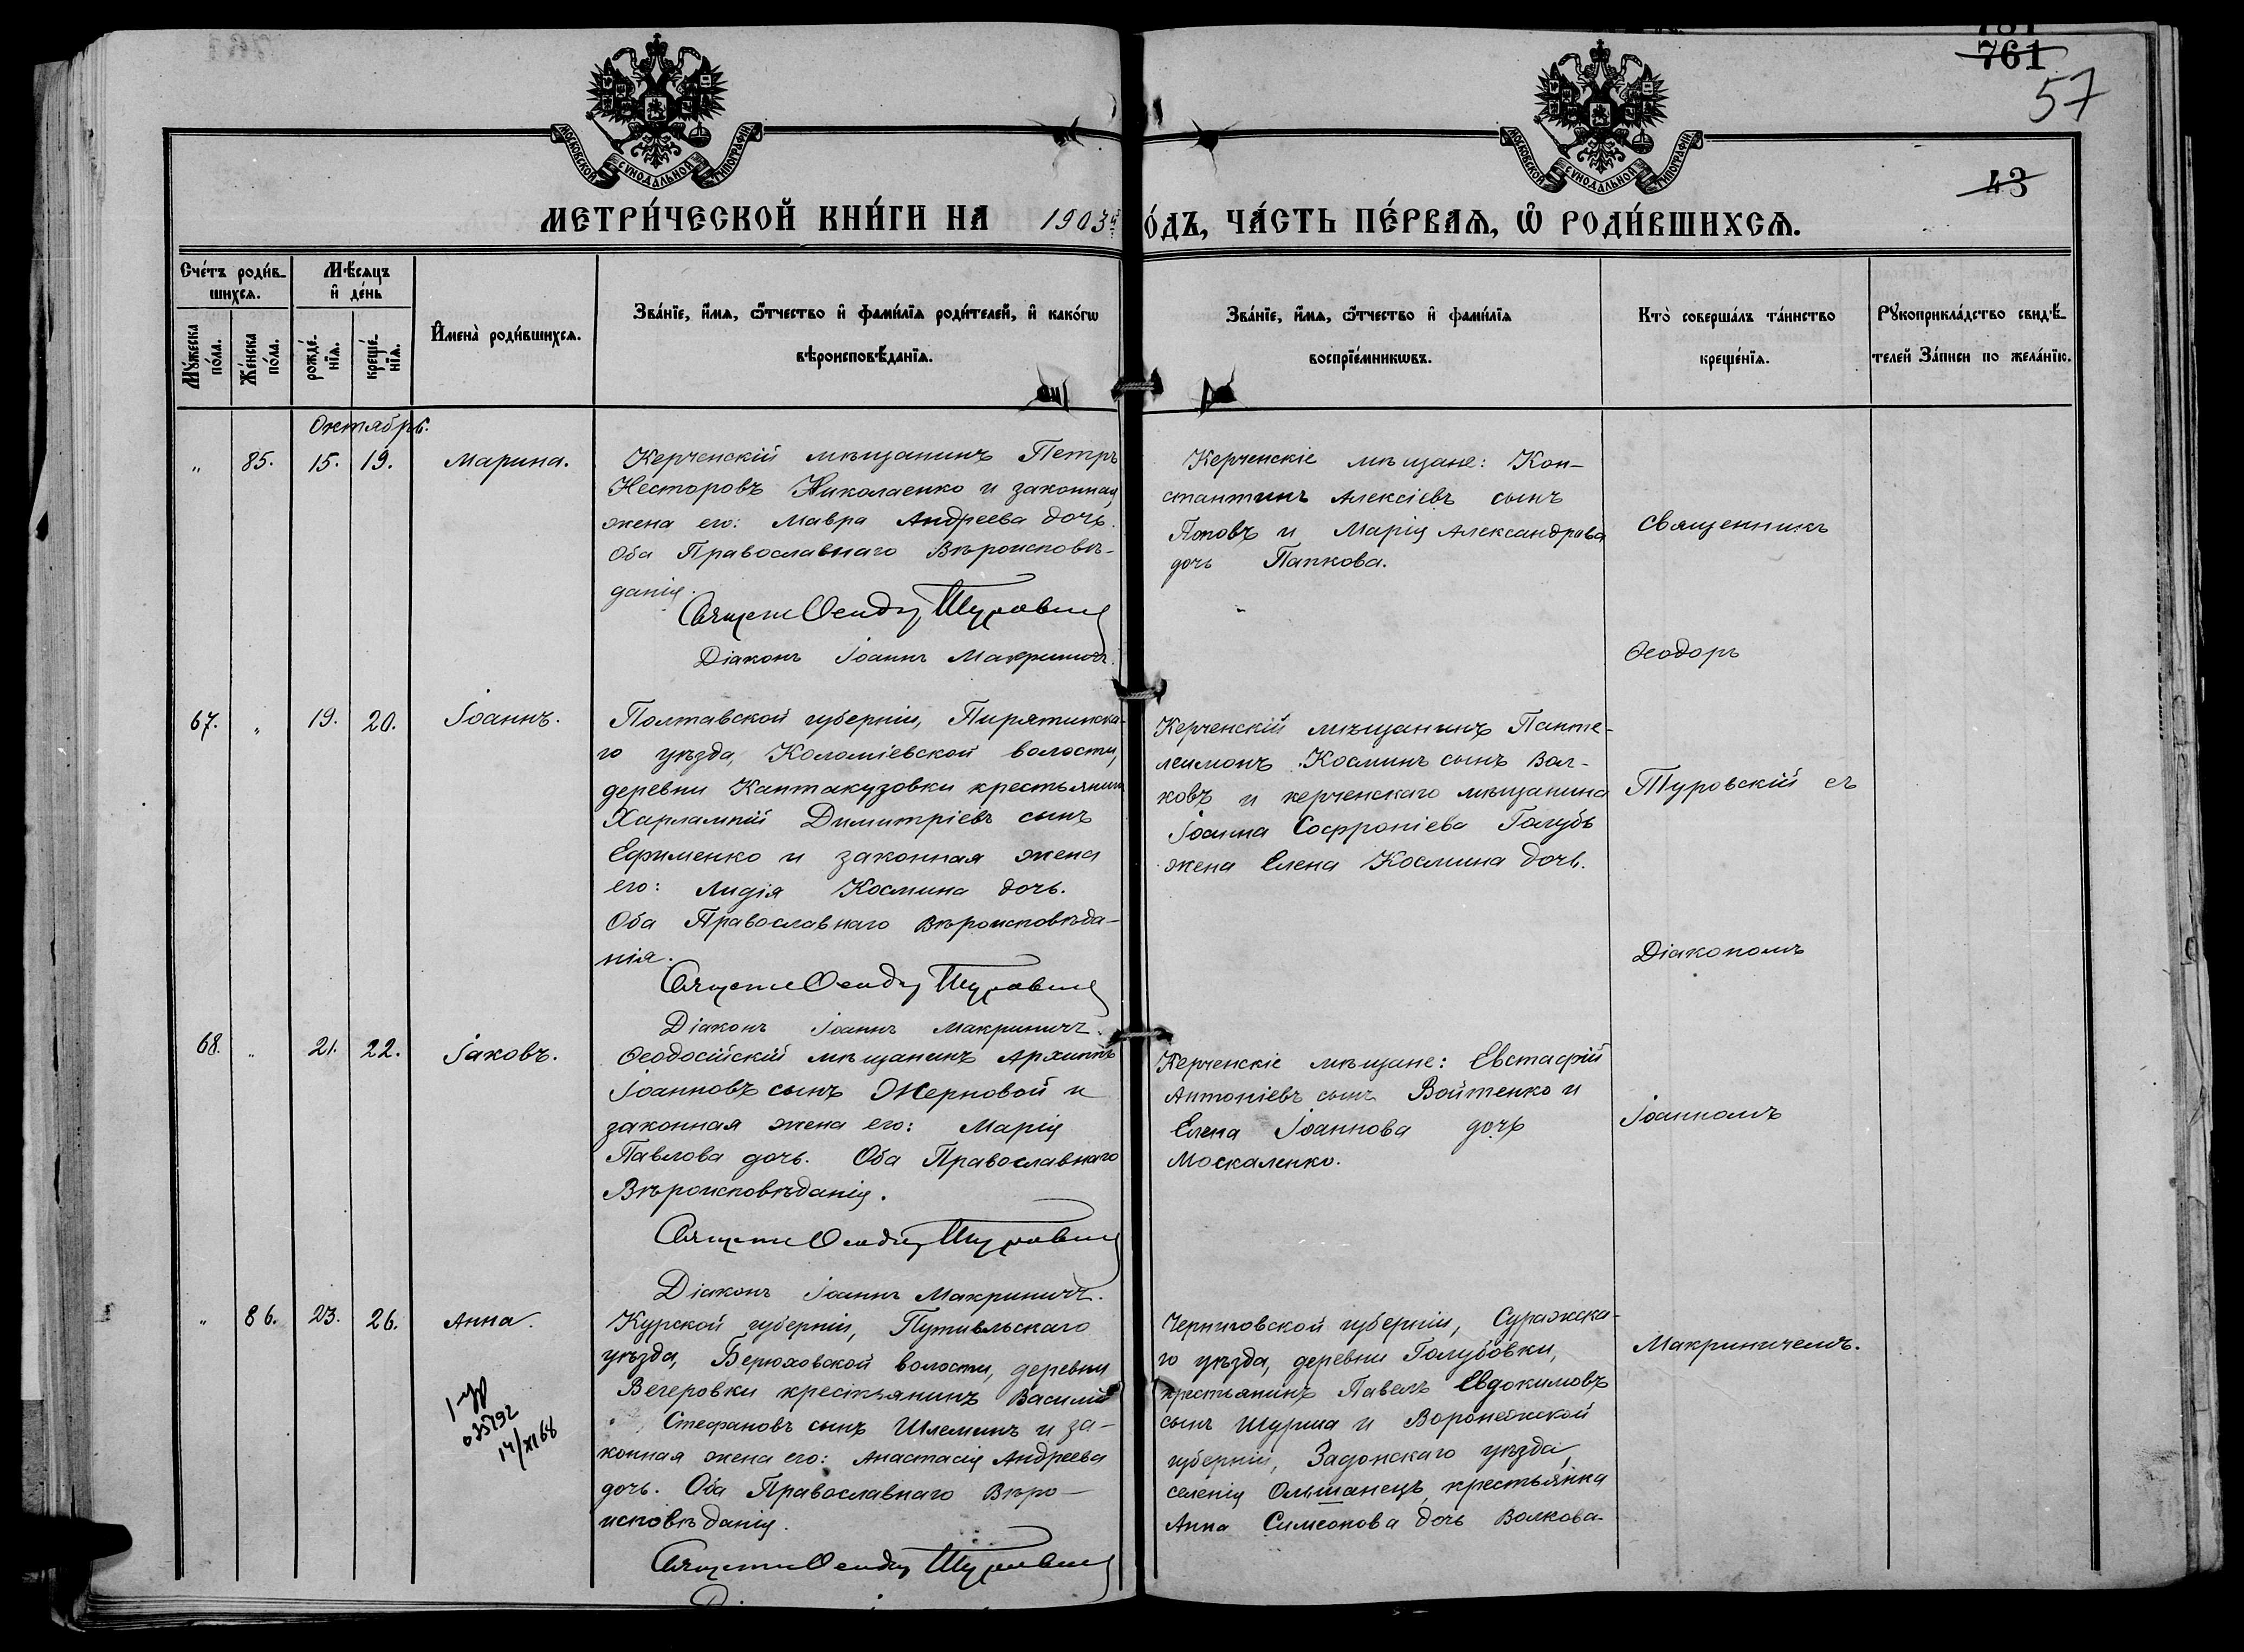 781
761
57
43
МОСКОВСКОЙ СѴНОДАЛЬНОЙ ТИПОГРАФІИ
МОСКОВСКОЙ СѴНОДАЛЬНОЙ ТИПОГРАФІИ
МЕТРИ́ЧЕСКОЙ КНИ́ГИ НА 1903й
О́ДЪ, ЧА́СТЬ ПЕ́РВАѦ, Ѡ РОДИ́ВШИХСѦ.
Сче́тъ роди́в-
шихсѧ.
Мѣ́сѧцъ
и де́нь
Мꙋ́жеска
по́ла.
Же́нска
по́ла.
рожде́-
нїѧ.
креще́-
нїѧ.
Имена̀ роди́вшихсѧ.
Зва́нїе, и́мѧ, ѻ́тчество и фами́лїѧ роди́телей, и како́гѡ
вѣроисповѣ́данїѧ.
Зва́нїе, и́мѧ, ѻ́тчество и фами́лїѧ
воспрїе́мникѡвъ.
Кто̀ соверша́лъ та́инство
креще́нїѧ.
Рꙋкоприкла́дство свидѣ́-
телей За́писи по жела́нїю.
Октябрь.
„ 85. 15. 19. Марина.
Керченскій мѣщанинъ Петръ
Несторовъ Николаенко и законная
жена его: Мавра Андреева дочь.
Оба Православнаго Вѣроисповѣ-
данія.
Священ Ѳеодор Туровскій
Діаконъ Іоаннъ Макриничъ.
Керченскіе мѣщане: Кон-
стантинъ Алексіевъ сынъ
Поповъ и Марія Александрова
дочь Папкова.
Священникъ
Ѳеодоръ
67. „ 19. 20. Іоаннъ.
Полтавской губерніи, Пирятинска-
го уѣзда, Коломіевской волости,
деревни Кантакузовки крестьянинъ
Харлампій Димитріевъ сынъ
Ефименко и законная жена
его: Лидія Космина дочь.
Оба Православнаго Вѣроисповѣда-
нія.
Священ Ѳеодор Туровскій
Діаконъ Іоаннъ Макриничъ.
Керченскій мѣщанинъ Панте-
леимонъ Косминъ сынъ Вол-
ковъ и керченскаго мѣщанина
Іоанна Софроніева Голубь
жена Елена Космина дочь.
Туровскій съ
Діакономъ
68. „ 21. 22. Іаковъ.
Ѳеодосійскій мѣщанинъ Архиппъ
Іоанновъ сынъ Жерновой и
законная жена его: Марія
Павлова дочь. Оба Православнаго
Вѣроисповѣданія.
Священ Ѳеодор Туровскій
Діаконъ Іоаннъ Макриничъ.
Керченскіе мѣщане: Евстафій
Антоніевъ сынъ Войтенко и
Елена Іоаннова дочь
Москаленко.
Іоанномъ
„ 86. 23. 26. Анна.
035192
14/XI 68
Курской губерніи, Путивльскаго
уѣзда, Берюховской волости, деревни
Вегеровки крестьянинъ Василій
Стефановъ сынъ Шлеминъ и за-
конная жена его: Анастасія Андреева
дочь. Оба Православнаго Вѣро-
исповѣданія.
Священ Ѳеодор Туровскій
Черниговской губерніи, Суражска-
го уѣзда, деревни Голубовки,
крестьянинъ Павелъ Евдокимовъ
сынъ Шурма и Воронежской
губерніи, Задонскаго уѣзда,
селенія Ольшанецъ крестьянка
Анна Симеонова дочь Волкова.
Макриничемъ.